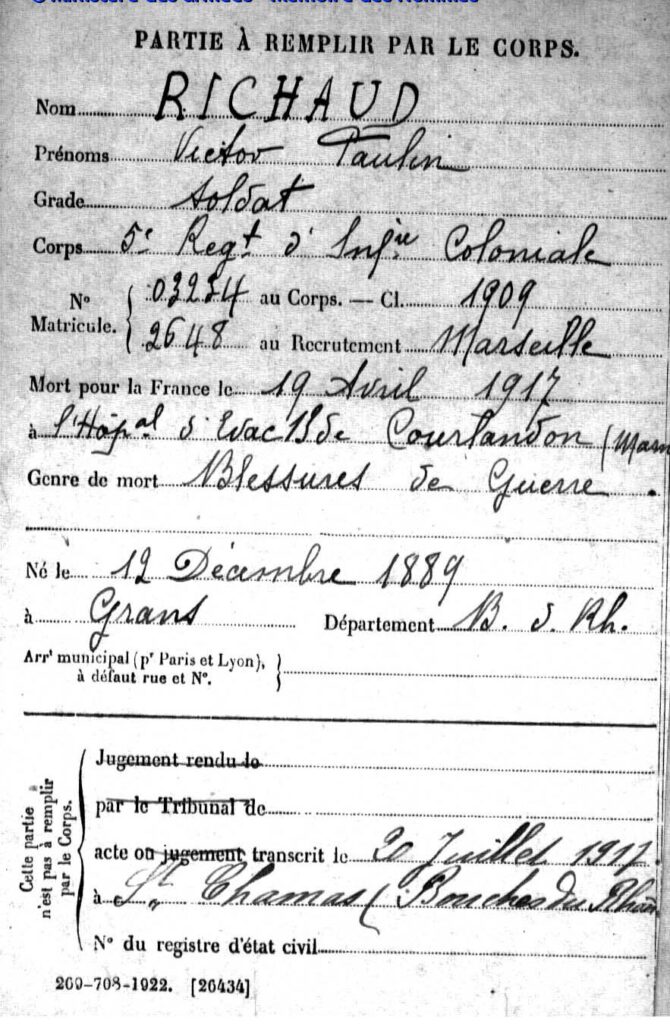 © Ministère des armées - Mémoire des Hommes
PARTIE À REMPLIR PAR LE CORPS.
Nom RICHAUD
Prénoms Victor Paulin
Grade Soldat
Corps 5e Regt d'Infie Coloniale
No Matricule. { 03234 au Corps. — Cl. 1909
2648 au Recrutement Marseille
Mort pour la France le 19 Avril 1917
à l'Hôpal d'Evac 13 de Courlandon (Marn
Genre de mort Blessures de Guerre.
Né le 12 Décembre 1889
à Grans Département B. d. Rh.
Arrt municipal (pr Paris et Lyon),
à défaut rue et No. }
Cette partie n'est pas à remplir par le Corps. {
Jugement rendu le
par le Tribunal de
acte ou jugement transcrit le 20 Juillet 1917
à St Chamas (Bouches du Rhône
No du registre d'état civil
269-708-1922. [26434]